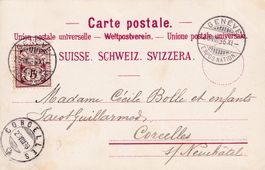 Carte postale.
Union postale universelle — Weltpostverein. — Unione postale universale
SUISSE. SCHWEIZ. SVIZZERA.
GENÈVE
CONSIGNATION
5
Madame Cécile Bolle et enfants
Corcelles
s/Neuchâtel
CORCELLES